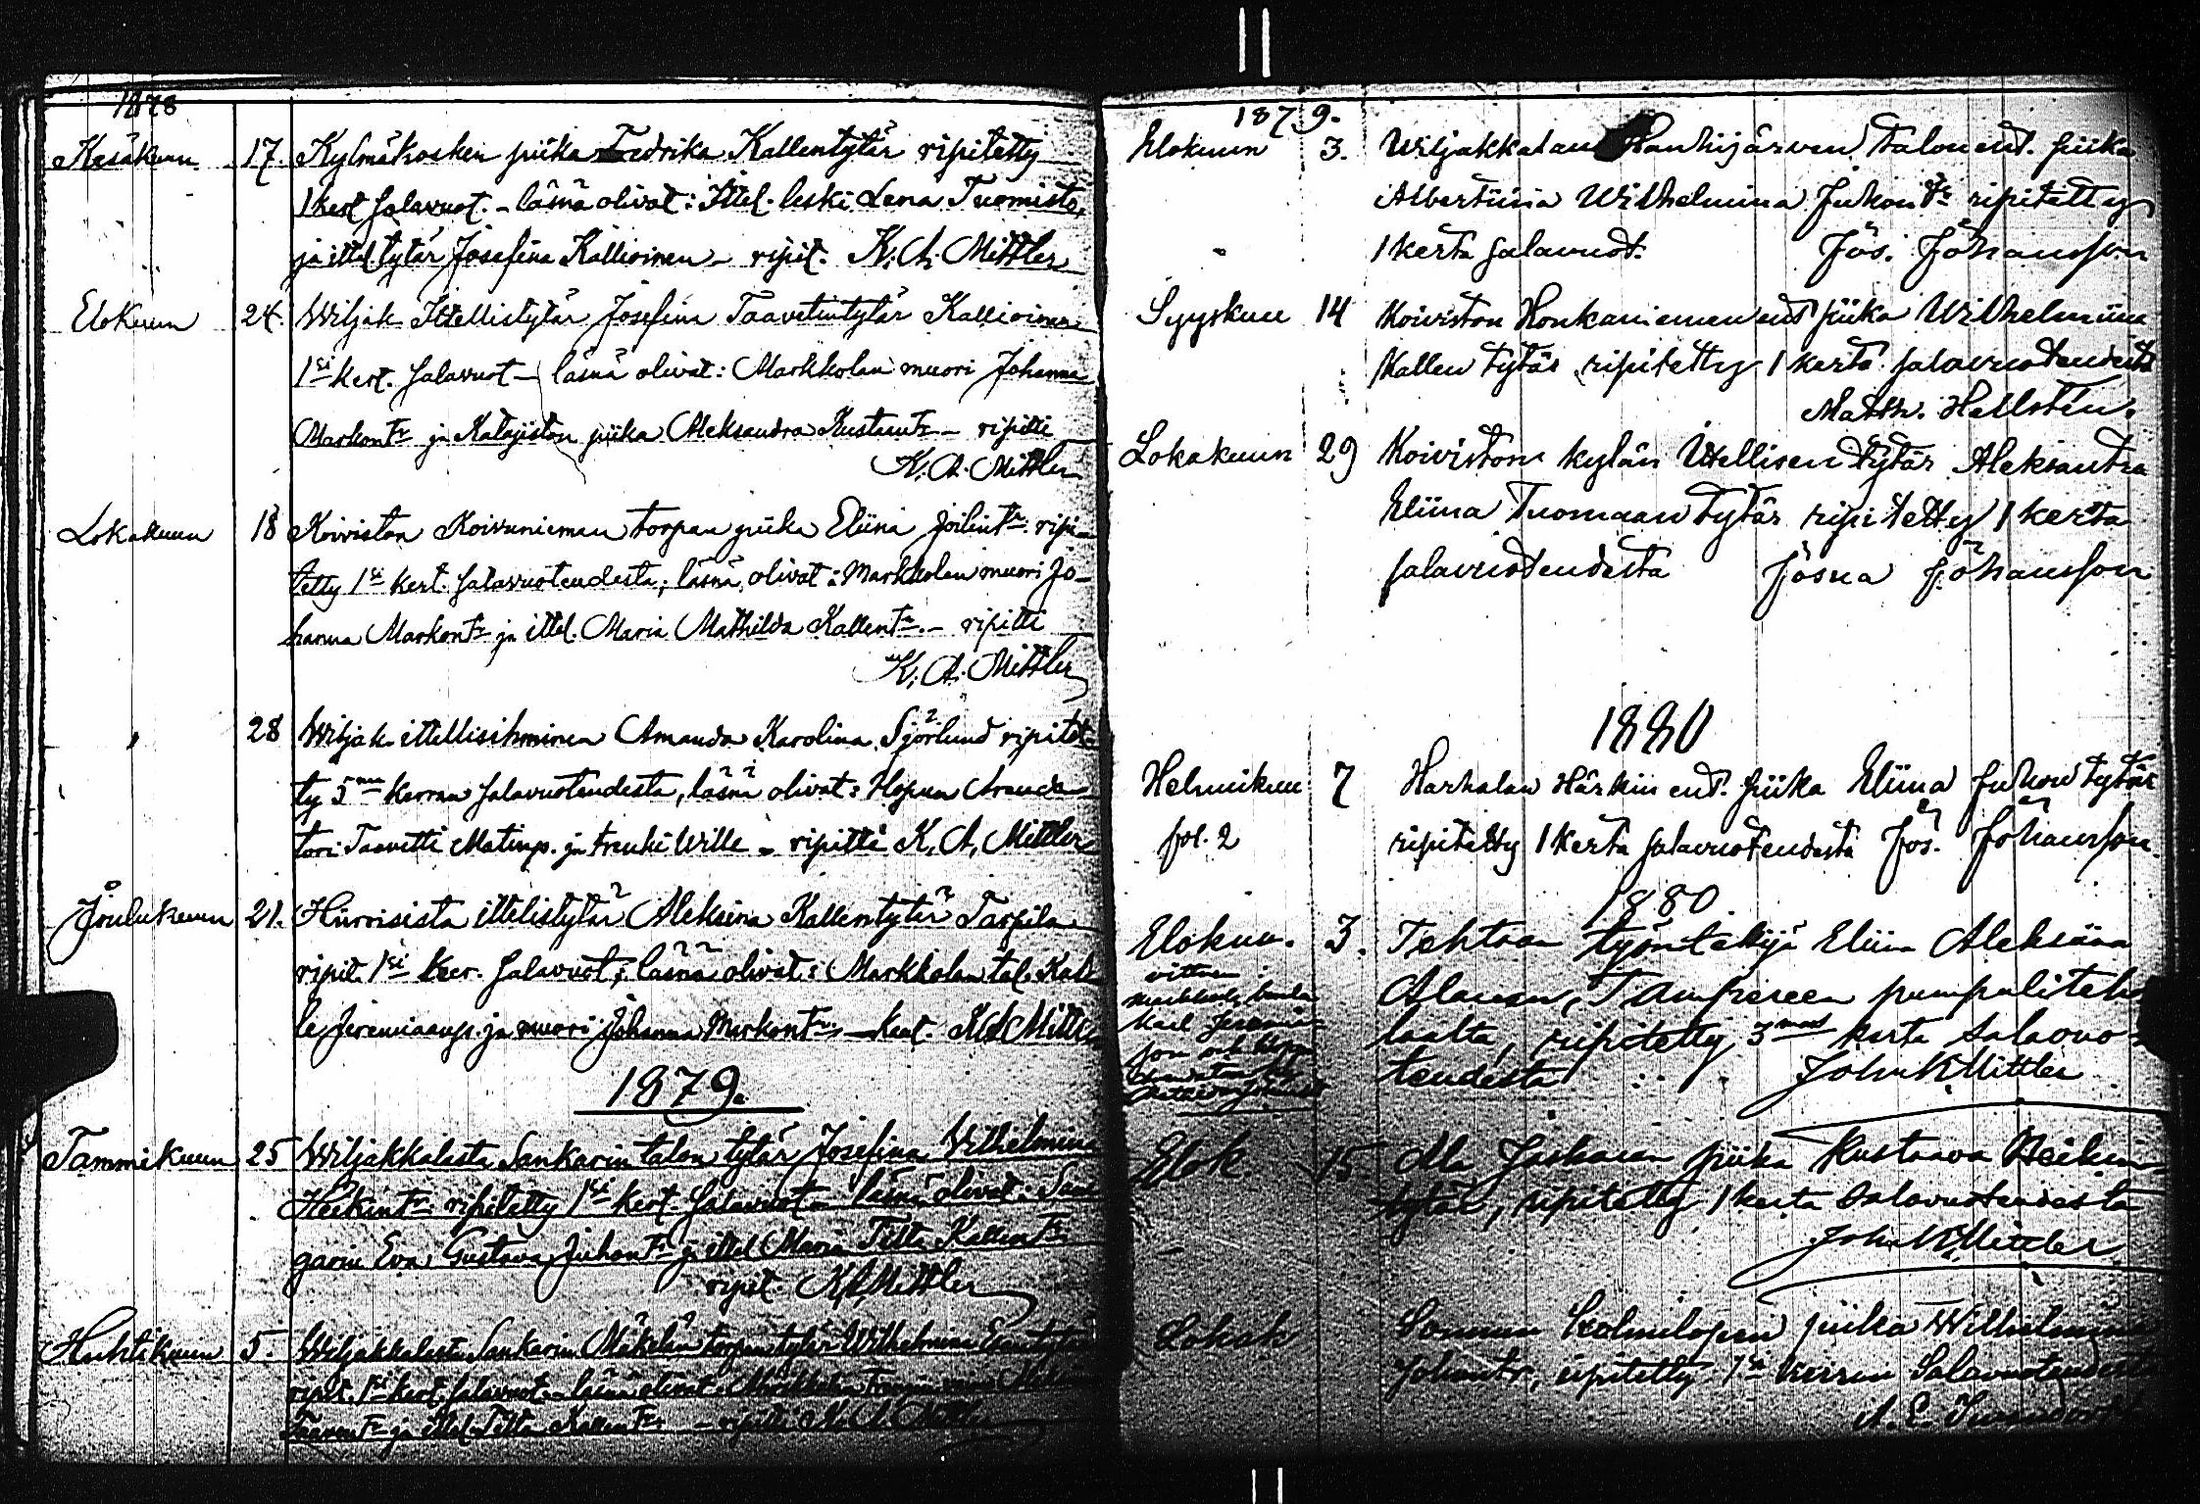 1878
Kesäkuun 17. Kylmäkosken piika Fredrika Kallentytär ripitetty
1 kert salavuot. – läsnä olivat: Ittel. leski Lena Tuomisto,
ja ittel tytär Josefina Kallioinen – ripit. K. A. Mittler
Elokuun 24. Wiljak Ittellistytär Josefina Taavetintytär Kallioinen
1si kert. salavuot – läsnä olivat: Markkolan muori Johanna
Markontr ja Katajiston piika Aleksandra Kustaantr – ripitti
K. A. Mittler
Lokakuun 18 Koiviston Koivuniemen torpan piika Eliina Joilintr. ripi-
tetty 1si kert. salavuoteudesta; läsnä olivat: Markkolan muori Jo-
hanna Markontr ja ittel. Maria Mathilda Kallentr. – ripitti
K. A. Mittler
" 28 Wiljak. ittellisihminen Amanda Karolina Sjörlund ripitet-
ty 5nen kerran salavuoteudesta, läsnä olivat: Hopun Arenda-
tori Taavetti Matinp. ja trenki Wille – ripitti K. A. Mittler
Joulukuun 21. Hirvisista ittelistytär Aleksina Kallentytär Tarpila
ripit. 1si ker. salavuot; läsnä olivat: Markkolan tal. Kal-
le Jeremiaanp. ja muori Johanna Markontr,
1879.
Tammikuun 25 Wiljakkalasta Sankarin talon tytär Josefina Wilhelmina
Heikintr. ripitetty 1si kert. salavuot – läsnä olivat: San-
garin Eva Gustava Juhontr ja ittel Maria Tilta Kallentr
ripit. K. A. Mittler
Huhtikuun 5. Wiljakkalasta Sankarin Mäkelän torpan tytär Wilhelmina
ripit. 1si kert. salavuot. – läsnä olivat:
Taaventr ja ittel. Tilta Kallentr. – ripitti K. A. Mittler
1879.
Elokuun 3. Wiljakkalan Hanhijärven talon ent. piika
Albertiina Wilhelmina Juhontr ripitetty
1 kerta salavuot. Jos. Johansson
Syyskuu 14 Koiviston Honkaniemen ent piika Wilhelmiina
Kallen tytär ripitetty 1 kerta salavuoteudesta
Matth. Hellsten.
Lokakuun 29 Koiviston kylän Ittellisen tytär Aleksandra
Eliina Tuomaan tytär ripitetty 1 kerta
salavuoteudesta Josua Johansson
1880
Helmikuu 7 Harhalan Härkin ent. piika Eliina Juhon tytär
fol. 2 ripitetty 1 kerta salavuoteudesta Jos. Johansson.
1880
Elokuu. 3. Tehtaan työntekijä Eliin Aleksiina
Tampereen pumpuliteh-
Karl Jeremia-
son och
taalta, ripitetty 3mas kerta salavuo-
teudesta John K Mittler
Elok 15. Ala Jaskaran piika Kustaava Heikin-
tytär, ripitetty 1 kerta salavuoteudesta
John K Mittler
Lokak piika Wilhelmiina
Johantr, ripitetty 1si kerran salavuoteudesta